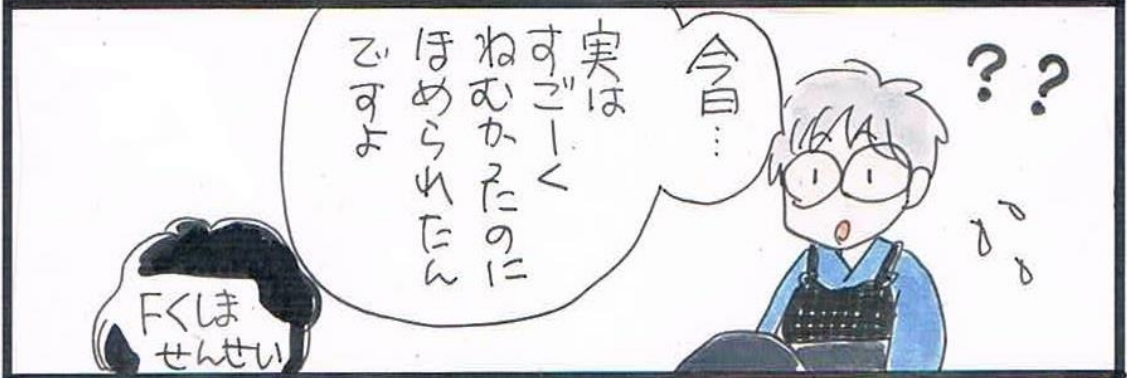 ？？
今日…
実は
すごーく
ねむかったのに
ほめられたん
ですよ
Fくしま
せんせい